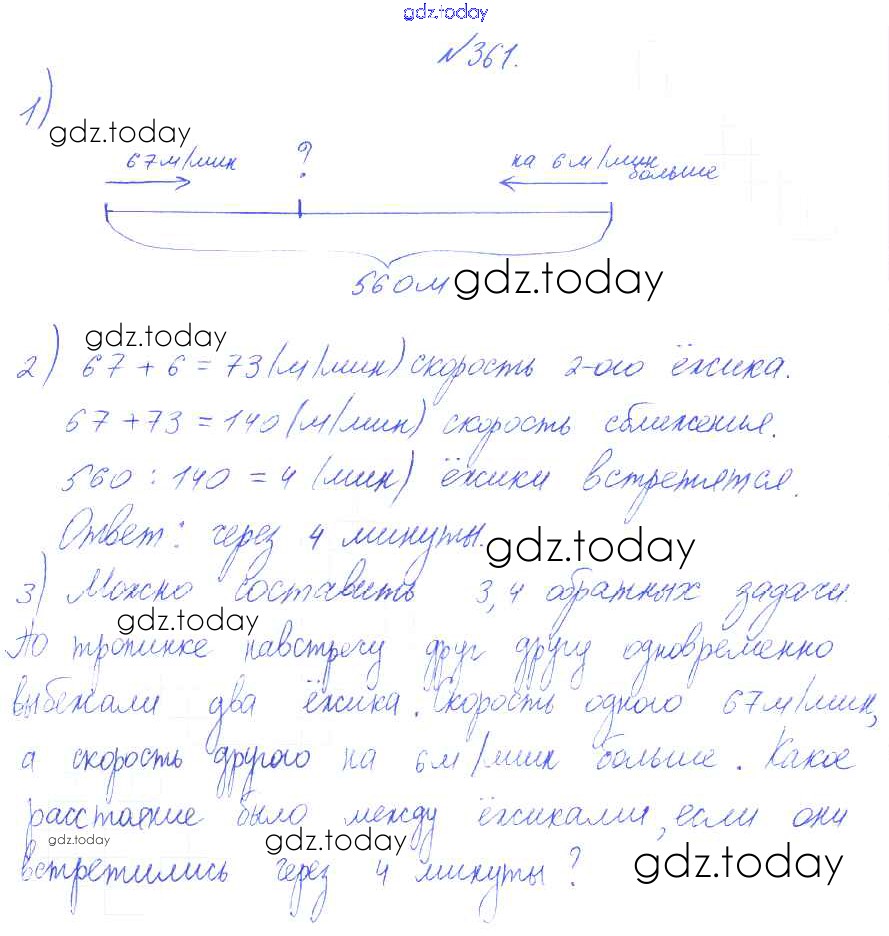 gdz.today
№361.
1)
gdz.today
67м/мин ? на 6м/мин
больше
560м gdz.today
gdz.today
2) 67 + 6 = 73(м/мин) скорость 2-ого ёжика.
67 + 73 = 140(м/мин) скорость сближенья.
560 : 140 = 4 (мин) ёжики встретятся.
Ответ: через 4 минуты.
gdz.today
3) Можно составить 3,4 обратных задачи.
gdz.today
По тропинке навстречу друг другу одновременно
выбежали два ёжика. Скорость одного 67м/мин,
а скорость другого на 6м/мин больше. Какое
расстояние было между ёжиками, если они
gdz.today gdz.today gdz.today
встретились через 4 минуты?